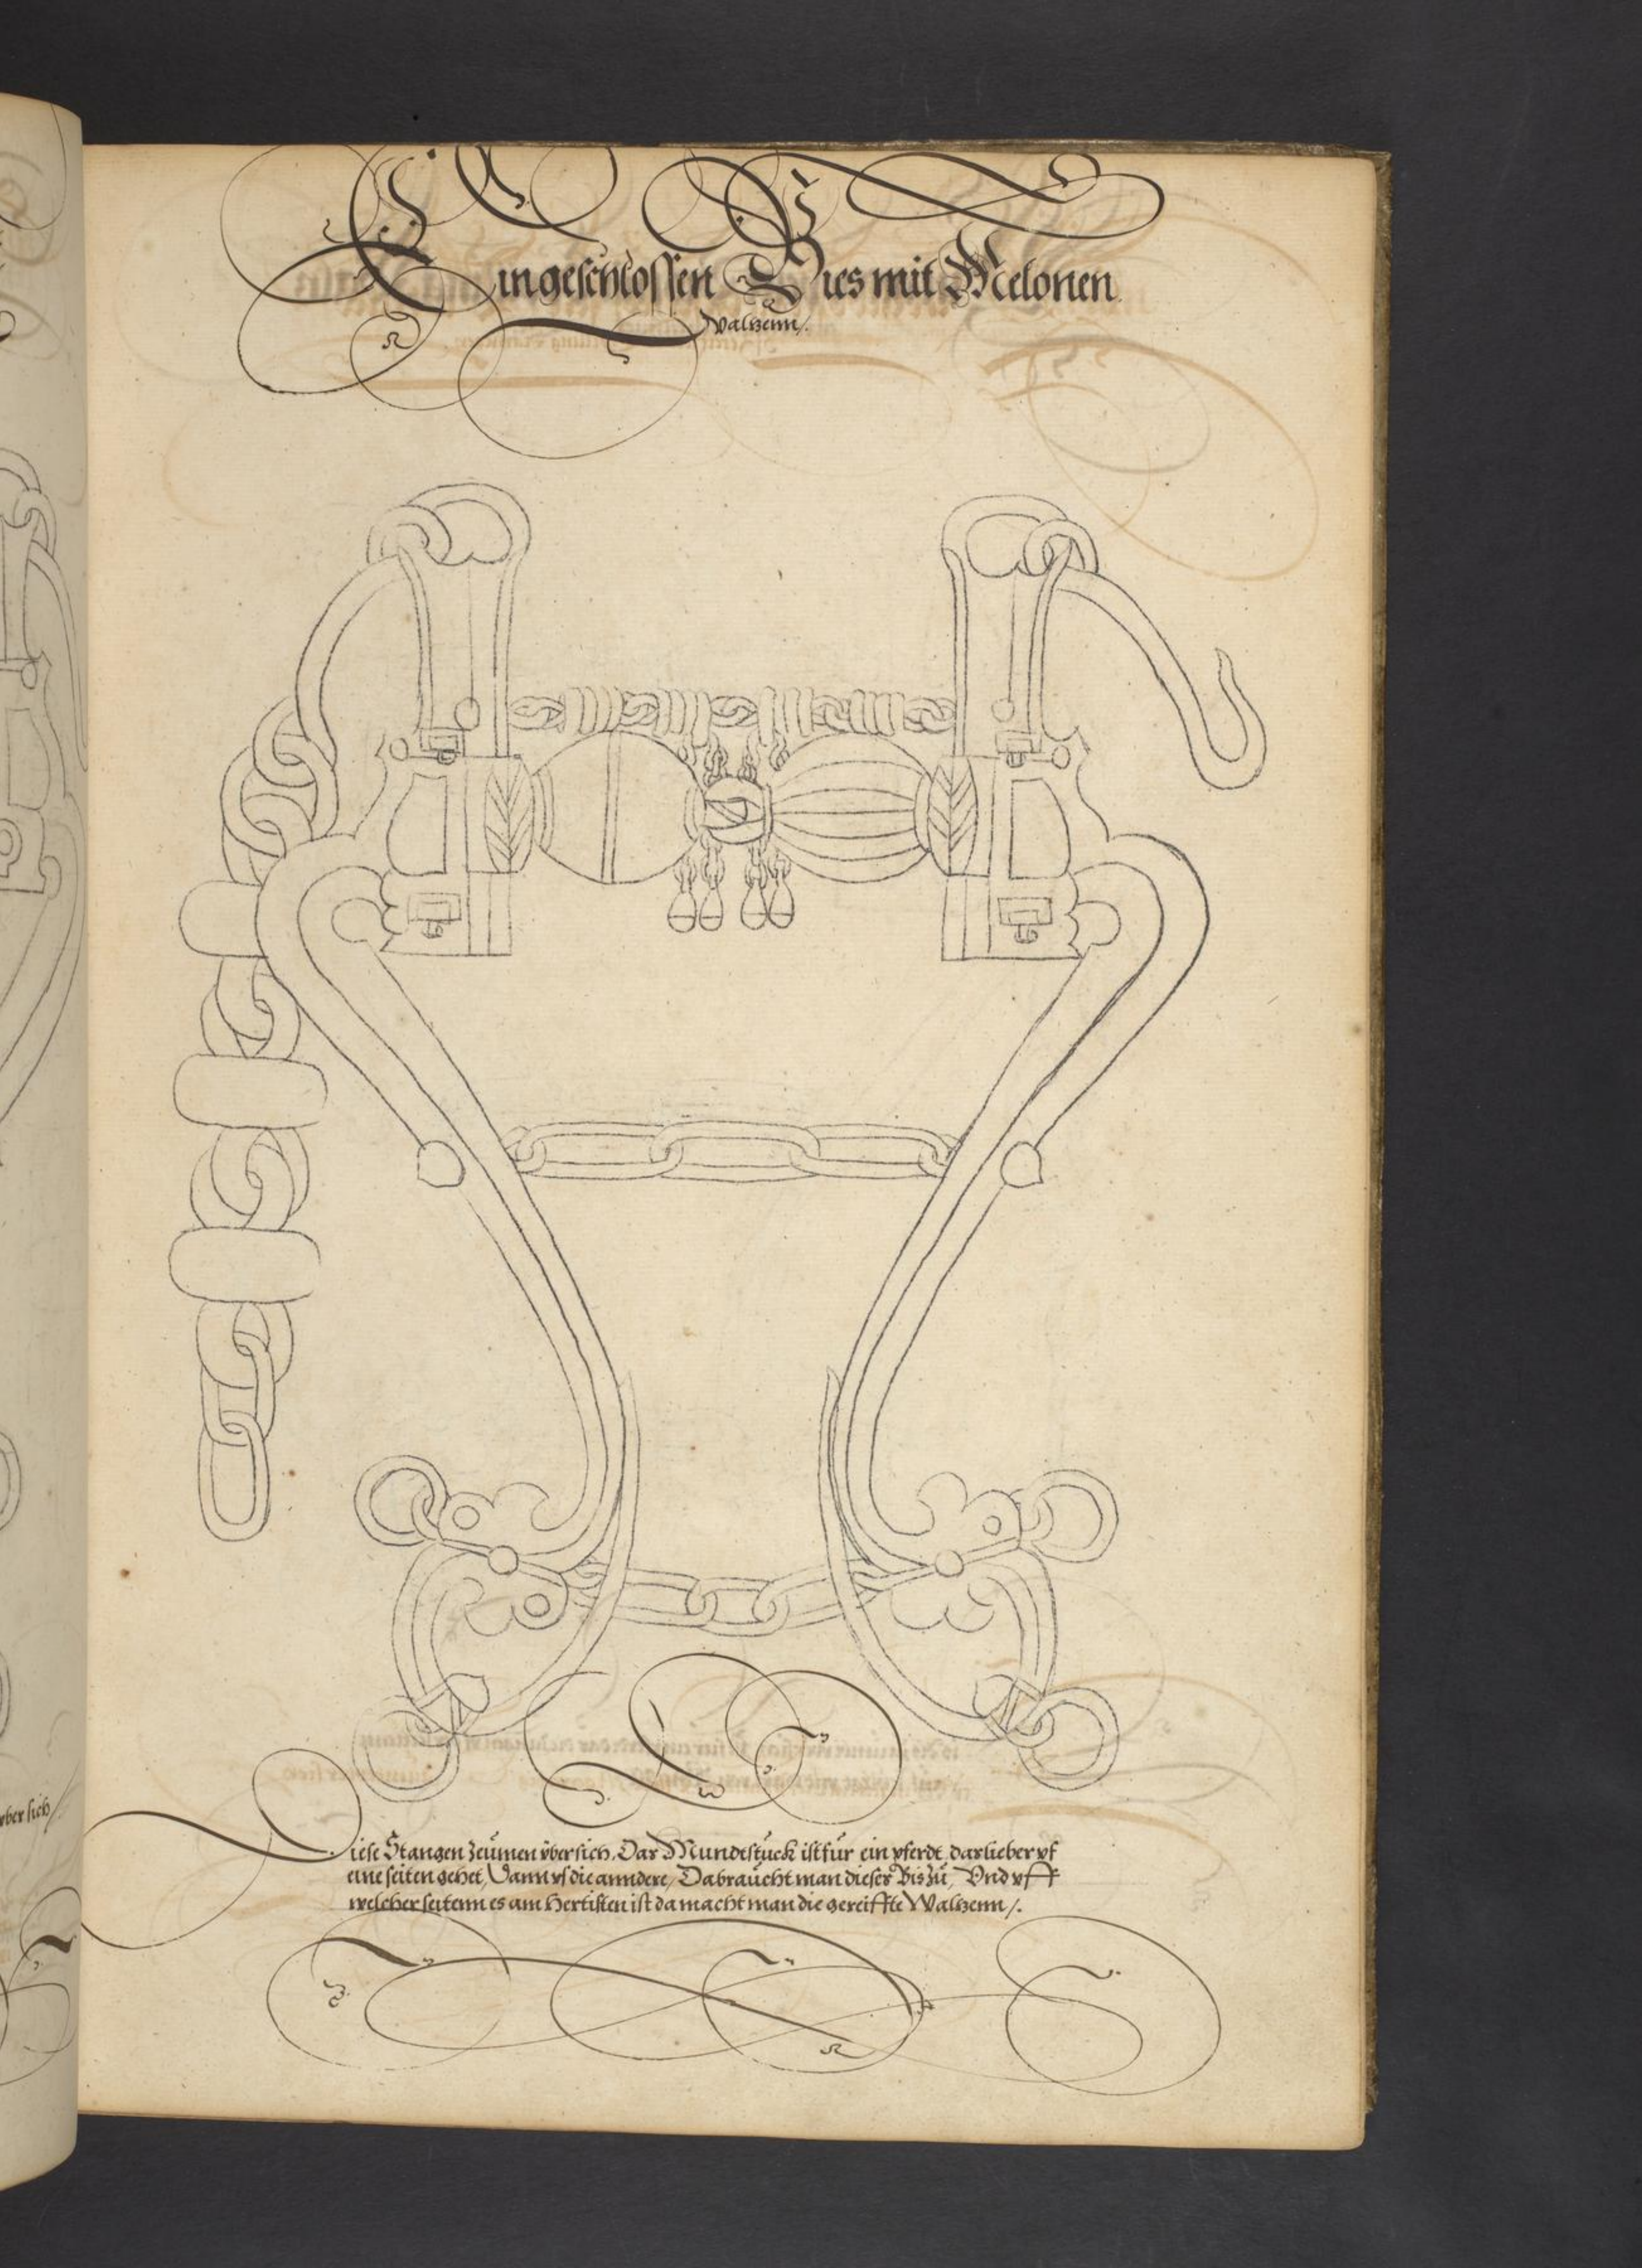 Ein geschlossen Bies mit Melonen
Waltzenn /.
Diese Stangen Zeümen vbersich, Das Mundtstück ist für ein pferdt, das lieber vf
eine seiten gehet, Dann vf die anndere, Da braücht man dieses Bis zü, Vnd vff
welcher seitenn es am Hertisten ist da macht man die gereiffte Waltzenn /.
vbersich /